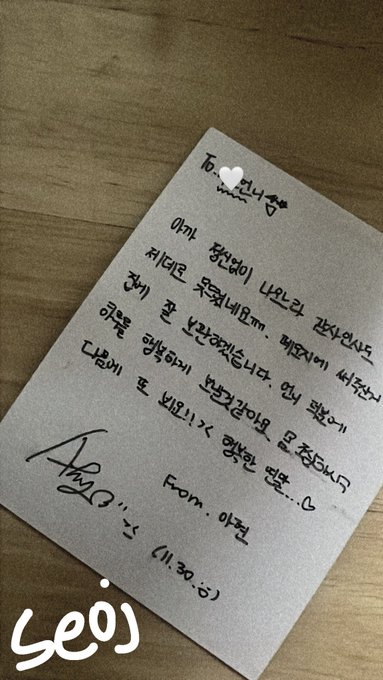 To. 언니
아까 정신없이 나오느라 감사인사도
제대로 못했네요ㅠㅠ. 메모지에 써주신거
집에 잘 보관하겠습니다. 언니 덕분에
하루를 행복하게 보낼것같아요
다음에 또 봐요!! >< 행복한 연말...♡
From. 아현
(11.30.)
seoj